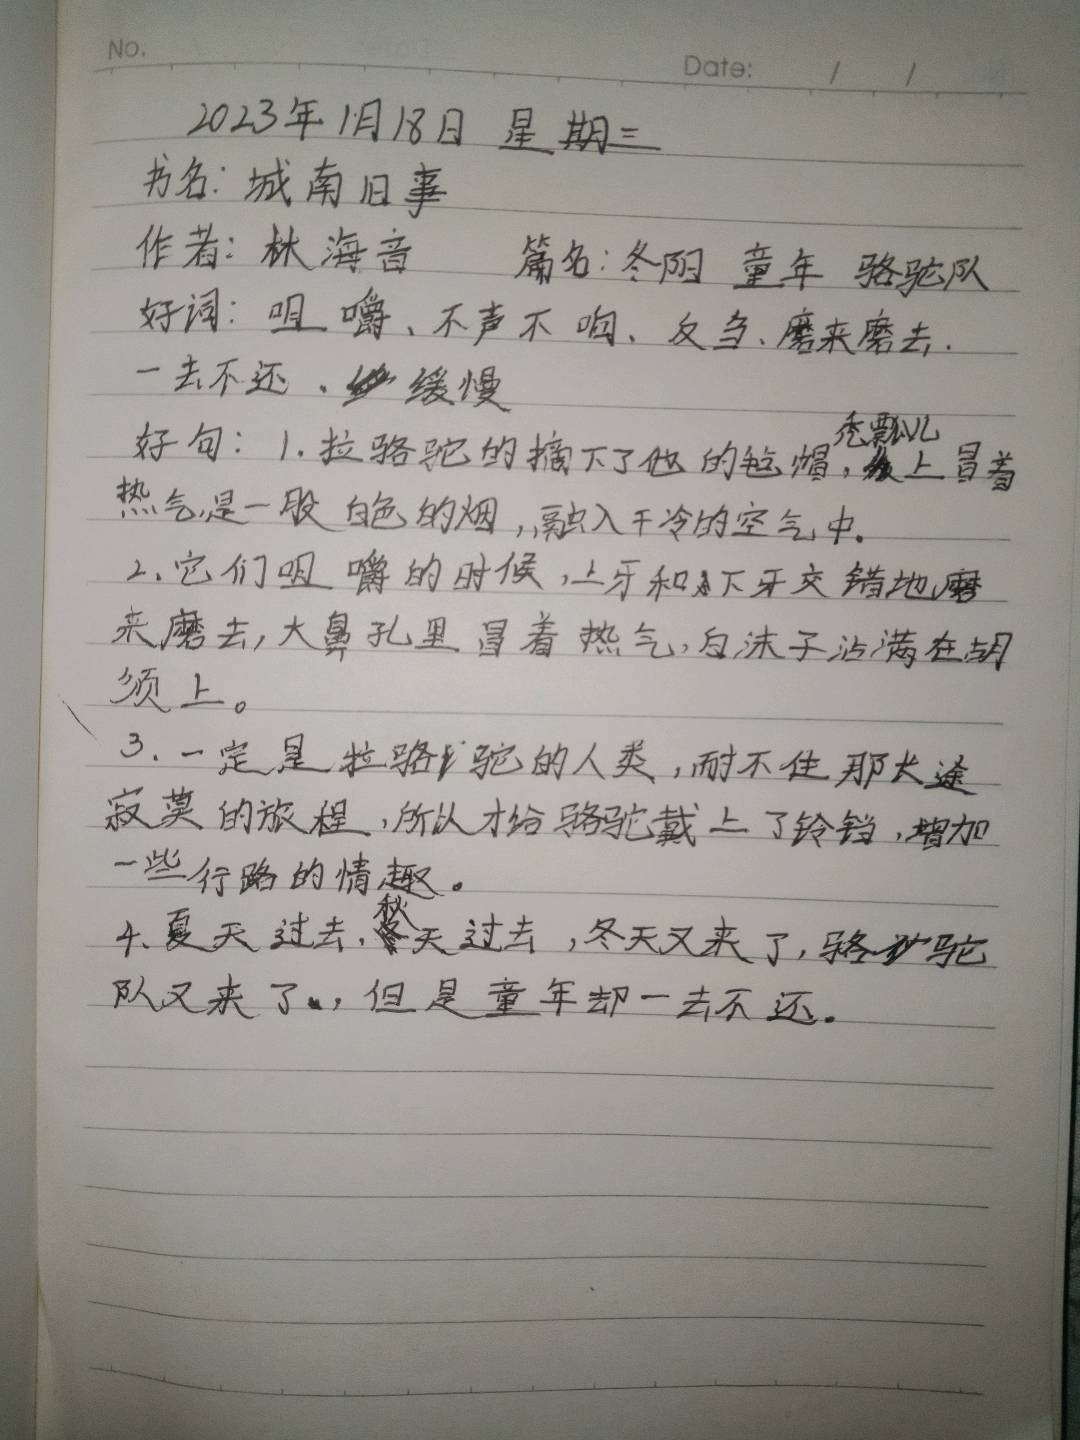 No.
Date: / /
2023年1月18日 星期三
书名：城南旧事
作者：林海音 篇名：冬阳 童年 骆驼队
好词：咀嚼、不声不响、反刍、磨来磨去、
一去不还、缓慢
好句：1.拉骆驼的摘下了他的毡帽，秃瓢儿上冒着
热气，是一股白色的烟，融入干冷的空气中。
2.它们咀嚼的时候，上牙和下牙交错地磨
来磨去，大鼻孔里冒着热气，白沫子沾满在胡
须上。
3.一定是拉骆驼的人类，耐不住那长途
寂莫的旅程，所以才给骆驼戴上了铃铛，增加
一些行路的情趣。
4.夏天过去，秋天过去，冬天又来了，骆驼
队又来了，但是童年却一去不还。